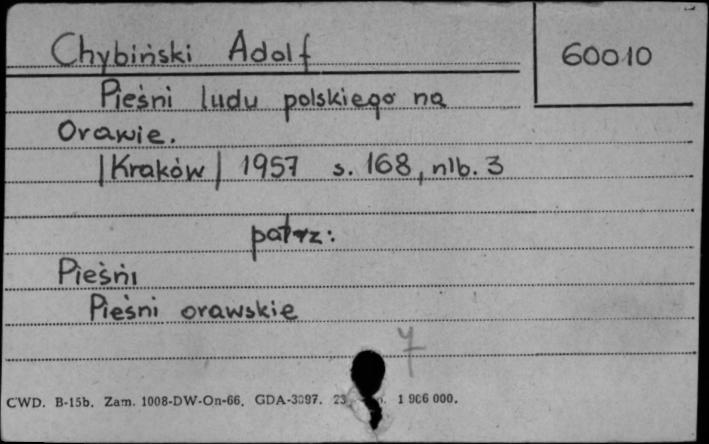 Chybiński Adolf
60010
Pieśni ludu polskiego na
Orawie.
|Kraków| 1957 s. 168, nlb. 3
patrz:
Pieśni
Pieśni orawskie
7
CWD. B-15b. Zam. 1008-DW-On-66. GDA-3097. 23 1 906 000.